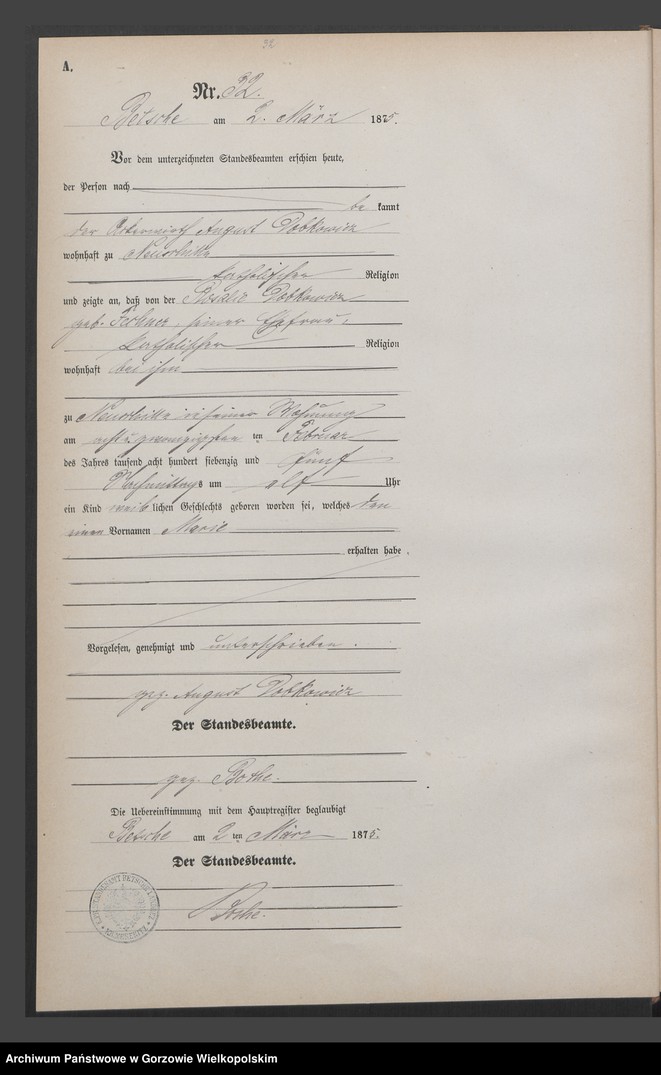 32
A.
Nr. 32.
Betsche am 2. März 1875.
Vor dem unterzeichneten Standesbeamten erschien heute,
der Person nach
be kannt
der August Dobkowicz
wohnhaft zu
katholischer Religion
und zeigte an, daß von der Rosalie Dobkowicz
geb. seiner Ehefrau,
katholischer Religion
wohnhaft bei ihm
zu in seiner Wohnung
am acht u. zwanzigsten ten Februar
des Jahres tausend acht hundert siebenzig und fünf
Vormittags um elf Uhr
ein Kind weib lichen Geschlechts geboren worden sei, welches den
einen Vornamen Marie
erhalten habe.
Vorgelesen, genehmigt und unterschrieben.
gez. August Dobkowicz
Der Standesbeamte.
gez. Bothe.
Die Uebereinstimmung mit dem Hauptregister beglaubigt
Betsche am 2 ten März 1875.
Der Standesbeamte.
Bothe.
Archiwum Państwowe w Gorzowie Wielkopolskim